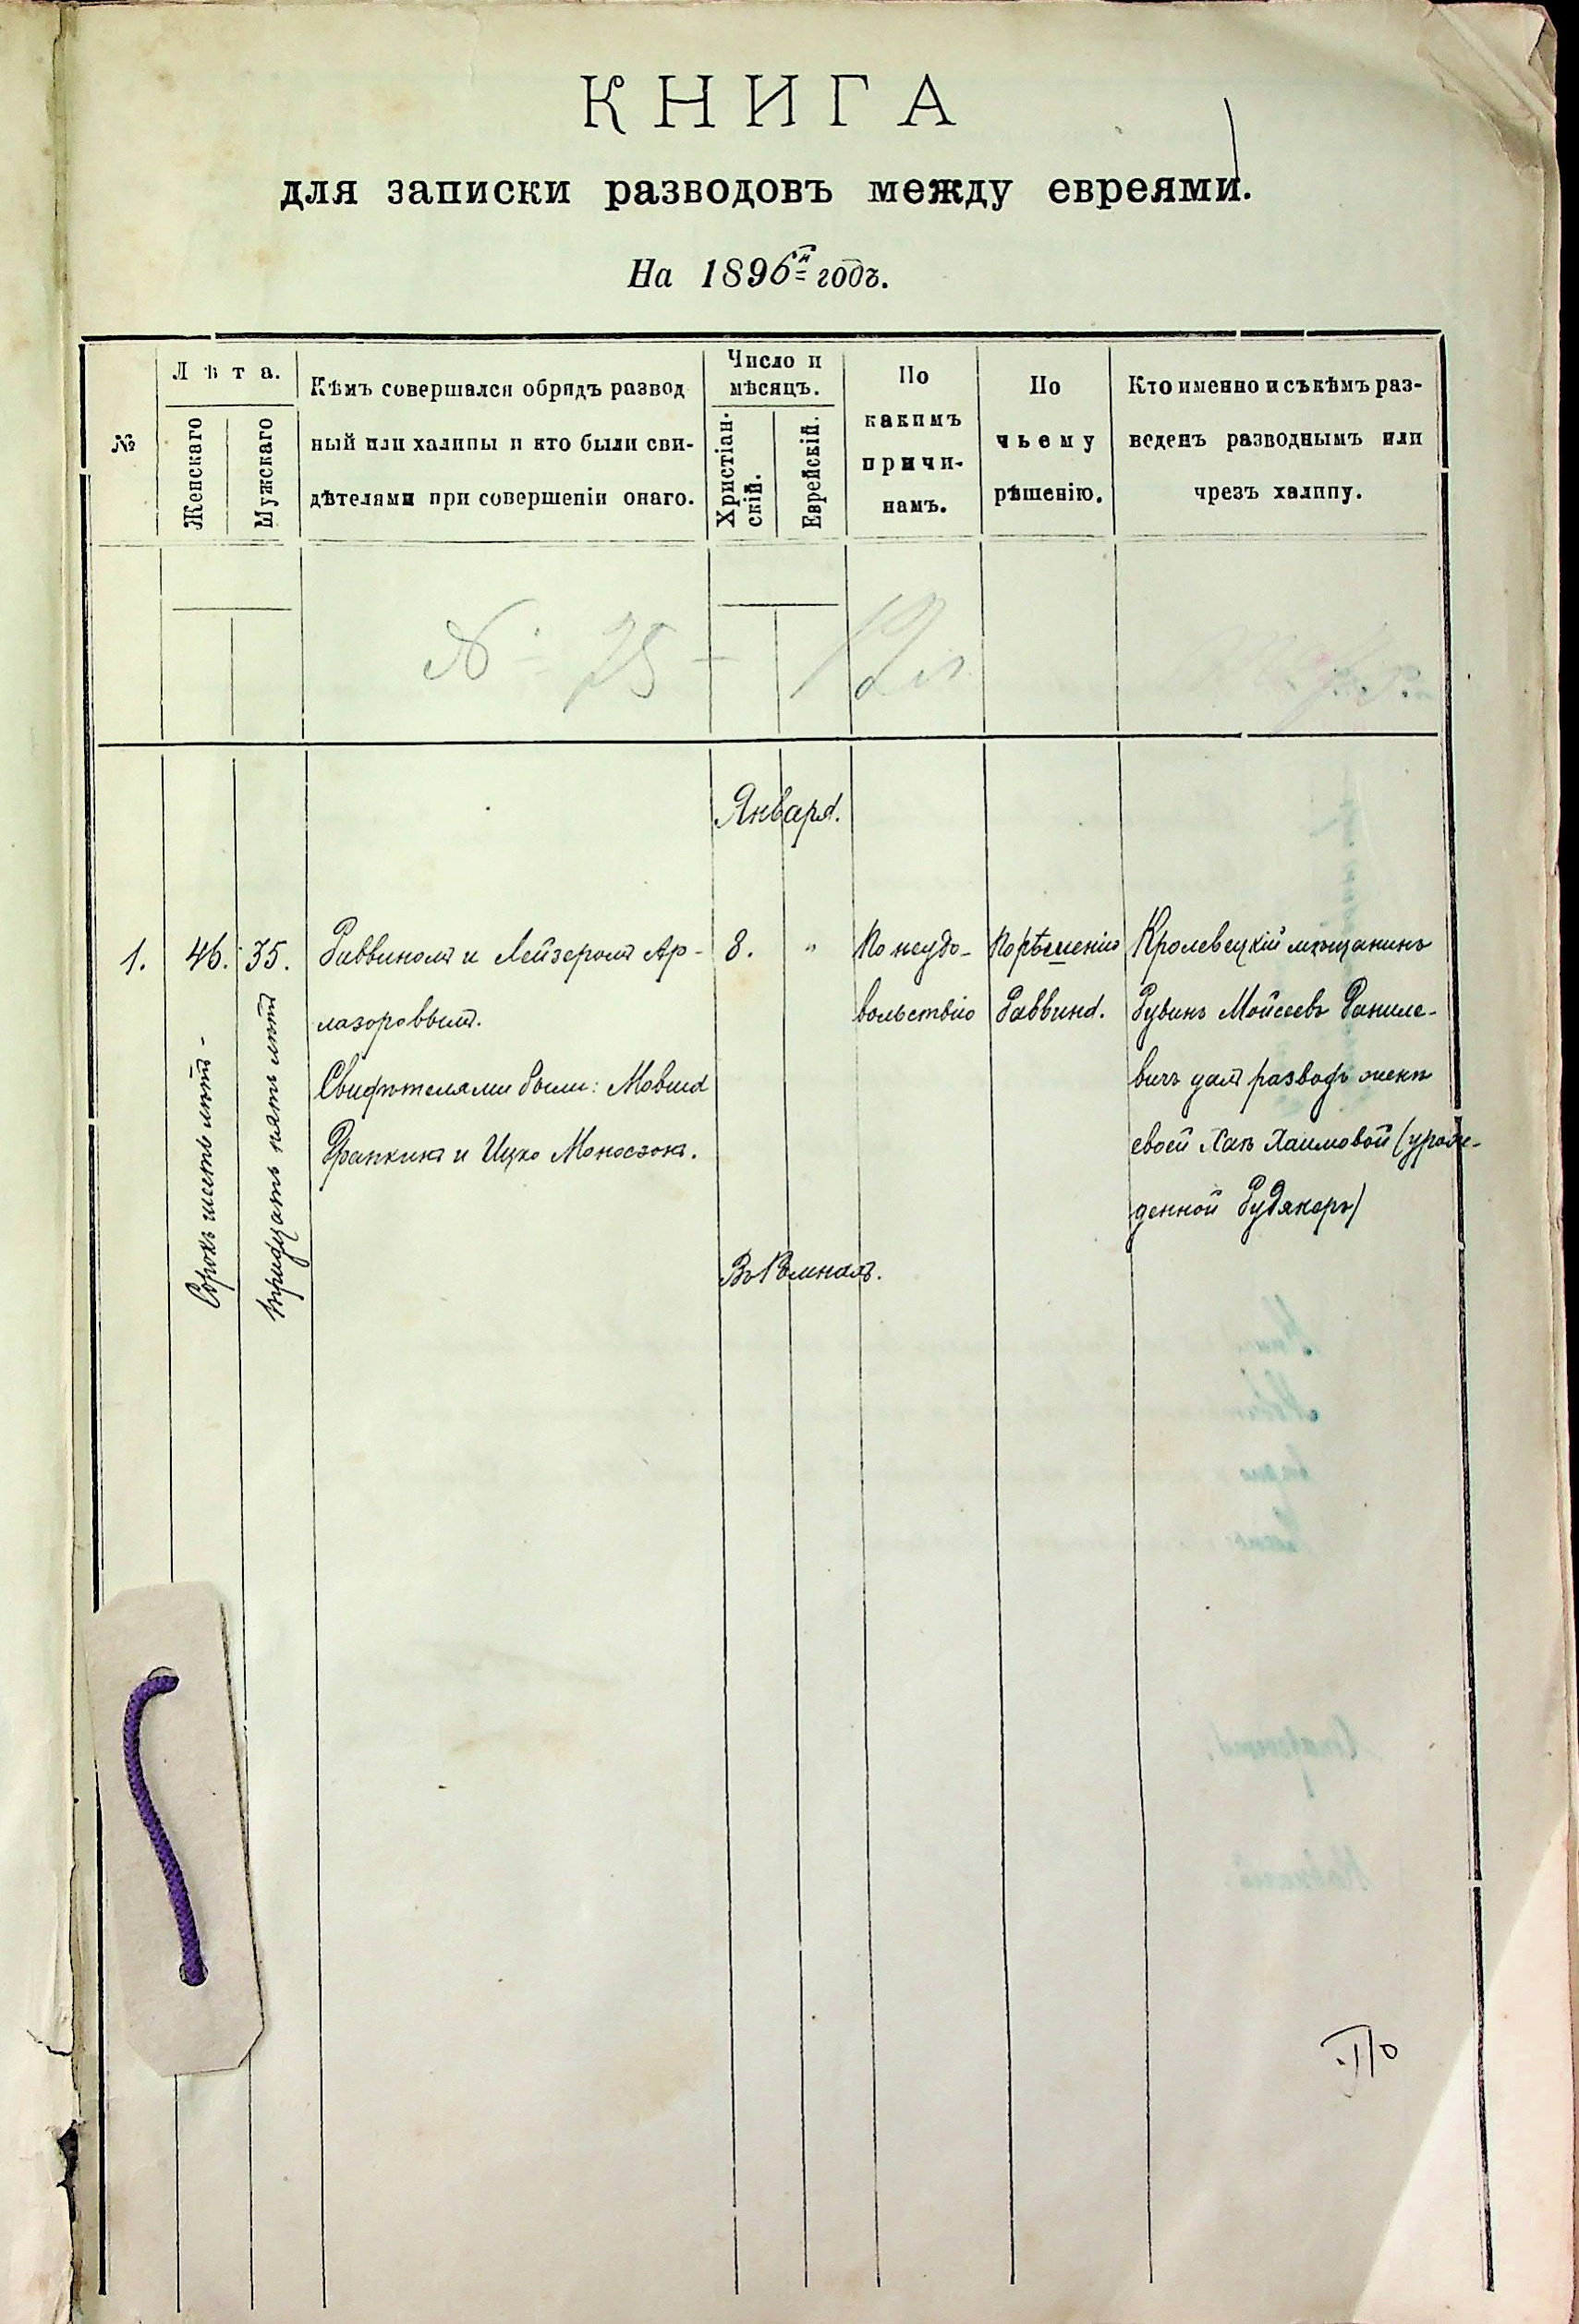 КНИГА
для записки разводовъ между евреями.
На 1896й годъ.
№
Лѣта.
Женскаго
Мужскаго
Кѣмъ совершался обрядъ развод
ный или халицы и кто были сви-
дѣтелями при совершеніи онаго.
Число и
мѣсяцъ.
Христіан-
скій.
Еврейскій.
По
какимъ
причи-
намъ.
По
чьему
рѣшенію.
Кто именно и съ кѣмъ раз-
веденъ разводнымъ или
чрезъ халицу.
№ 75 - 12 л
Января.
1.
46.
Сорокъ шесть лѣтъ -
35.
тридцать пять лѣтъ
Раввиномъ и Лейзеромъ Ар-
лазоровымъ.
Свидѣтелями были: Мовша
Франкинъ и Ицко Моносзонъ.
8.
"
По неудо-
вольствію
По рѣшенію
Раввина.
Кролевецкій мѣщанинъ
Рувинъ Мойсеевъ Даниле-
вичъ далъ разводъ женѣ
своей Ханѣ Хаимовой (урож-
денной Рудякеръ)
Въ Ромнахъ.